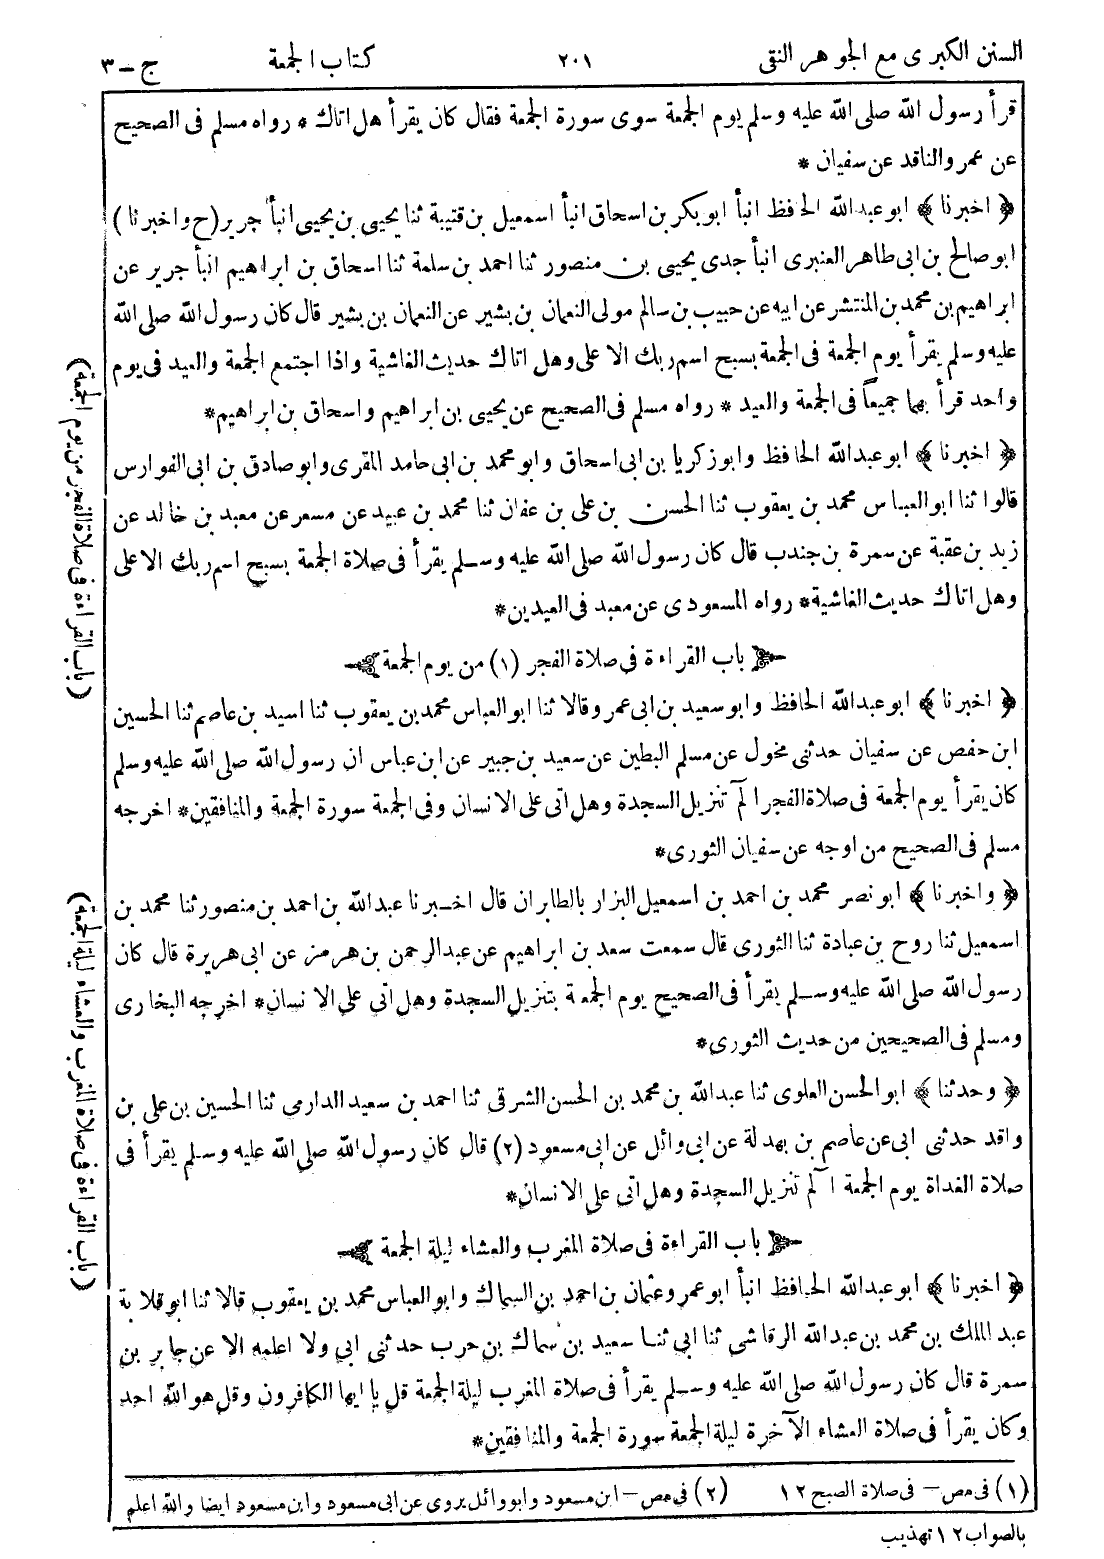 السنن الكبرى مع الجوهر النقى ٢٠١ كتاب الجمعة ج – ٣
قرأ رسول الله صلى الله عليه وسلم يوم الجمعة سوى سورة الجمعة فقال كان يقرأ هل اتاك * رواه مسلم فى الصحيح
عن عمرو الناقد عن سفيان *
﴿ اخبرنا ﴾ ابو عبد الله الحافظ انبأ ابو بكر بن اسحاق انبأ اسمعيل بن قتيبة ثنا يحيى بن يحيى انبأ جرير (ح واخبرنا)
ابو صالح بن ابى طاهر العنبرى انبأ جدى يحيى بن منصور ثنا احمد بن سلمة ثنا اسحاق بن ابراهيم انبأ جرير عن
ابراهيم بن محمد بن المنتشر عن ابيه عن حبيب بن سالم مولى النعمان بن بشير عن النعمان بن بشير قال كان رسول الله صلى الله
عليه وسلم يقرأ يوم الجمعة فى الجمعة بسبح اسم ربك الاعلى وهل اتاك حديث الغاشية واذا اجتمع الجمعة والعيد فى يوم
واحد قرأ بهما جميعاً فى الجمعة والعيد * رواه مسلم فى الصحيح عن يحيى بن ابراهيم واسحاق بن ابراهيم*
﴿ اخبرنا ﴾ ابو عبد الله الحافظ وابو زكريا بن ابى اسحاق وابو محمد بن ابى حامد المقرى وابو صادق بن ابى الفوارس
قالوا ثنا ابو العباس محمد بن يعقوب ثنا الحسن بن على بن عفان ثنا محمد بن عبيد عن مسعر عن معبد بن خالد عن
زيد بن عقبة عن سمرة بن جندب قال كان رسول الله صلى الله عليه وسلم يقرأ فى صلاة الجمعة بسبح اسم ربك الاعلى
وهل اتاك حديث الغاشية* رواه المسعودى عن معبد فى العيدين*
باب القراءة فى صلاة الفجر (١) من يوم الجمعة
﴿ اخبرنا ﴾ ابو عبد الله الحافظ وابو سعيد بن ابى عمرو قالا ثنا ابو العباس محمد بن يعقوب ثنا اسيد بن عاصم ثنا الحسين
ابن حفص عن سفيان حدثنى مخول عن مسلم البطين عن سعيد بن جبير عن ابن عباس ان رسول الله صلى الله عليه وسلم
كان يقرأ يوم الجمعة فى صلاة الفجر الٓمٓ تنزيل السجدة وهل اتى على الانسان وفى الجمعة سورة الجمعة والمنافقين* اخرجه
مسلم فى الصحيح من اوجه عن سفيان الثورى*
﴿ واخبرنا ﴾ ابو نصر محمد بن احمد بن اسمعيل البزار بالطابران قال اخبرنا عبد الله بن احمد بن منصور ثنا محمد بن
اسمعيل ثنا روح بن عبادة ثنا الثورى قال سمعت سعد بن ابراهيم عن عبد الرحمن بن هرمز عن ابى هريرة قال كان
رسول الله صلى الله عليه وسلم يقرأ فى الصحيح يوم الجمعة بتنزيل السجدة وهل اتى على الانسان* اخرجه البخارى
ومسلم فى الصحيحين من حديث الثورى*
﴿ وحدثنا ﴾ ابو الحسن العلوى ثنا عبد الله بن محمد بن الحسن الشرقى ثنا احمد بن سعيد الدارمى ثنا الحسين بن على بن
واقد حدثنى ابى عن عاصم بن بهدلة عن ابى وائل عن ابى مسعود (٢) قال كان رسول الله صلى الله عليه وسلم يقرأ فى
صلاة الغداة يوم الجمعة الٓمٓ تنزيل السجدة وهل اتى على الانسان*
باب القراءة فى صلاة المغرب والعشاء ليلة الجمعة
﴿ اخبرنا ﴾ ابو عبد الله الحافظ انبأ ابو عمرو عثمان بن احمد بن السماك وابو العباس محمد بن يعقوب قالا ثنا ابو قلابة
عبد الملك بن محمد بن عبد الله الرقاشى ثنا ابى ثنا سعيد بن سماك بن حرب حدثنى ابى ولا اعلمه الا عن جابر بن
سمرة قال كان رسول الله صلى الله عليه وسلم يقرأ فى صلاة المغرب ليلة الجمعة قل يا ايها الكافرون وقل هو الله احد
وكان يقرأ فى صلاة العشاء الآخرة ليلة الجمعة سورة الجمعة والمنافقين*
(١) فى مص – فى صلاة الصبح ١٢ (٢) فى مص – ابن مسعود وابو وائل يروى عن ابى مسعود وابن مسعود ايضا والله اعلم
بالصواب ١٢ تهذيب
(باب القراءة فى صلاة الفجر من يوم الجمعة)
(باب القراءة فى صلاة المغرب والعشاء ليلة الجمعة)